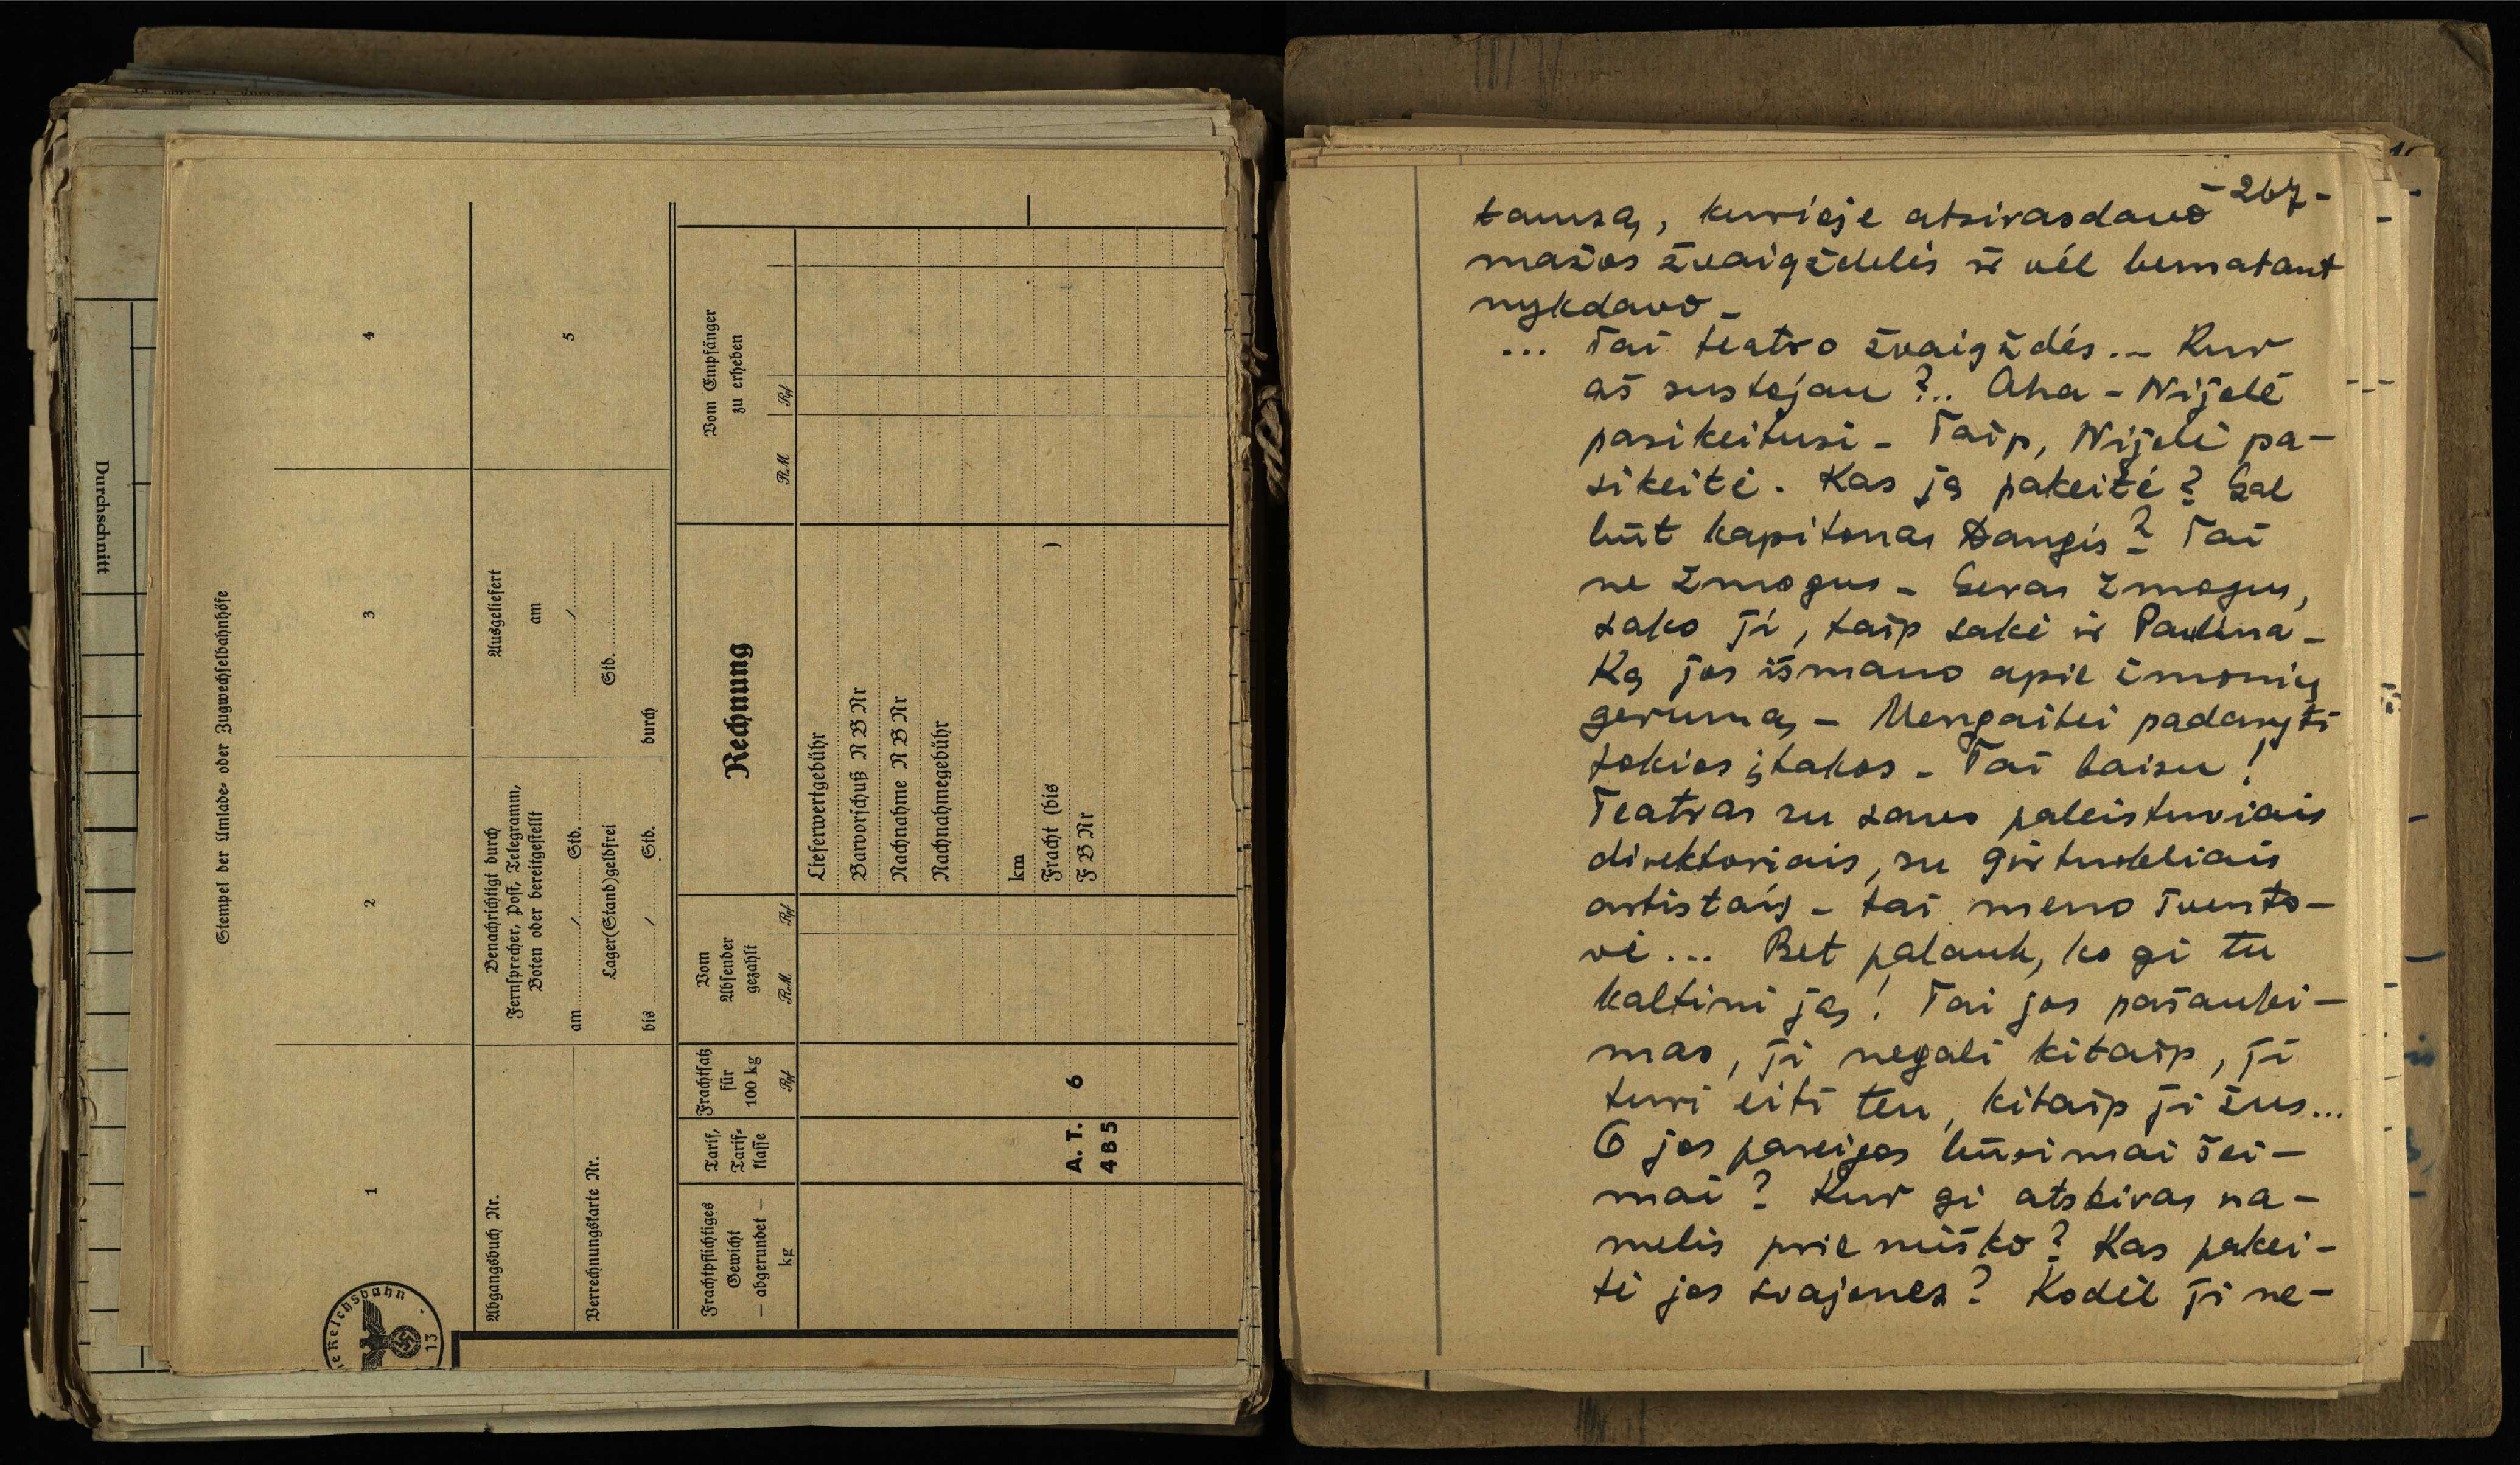 Durchschnitt
Stempel der Umlade- oder Zugwechselbahnhöfe
1
2
3
4
e Reichsbahn
13
Abgangsbuch Nr.
Verrechnungskarte Nr.
Benachrichtigt durch
Fernsprecher, Post, Telegramm,
Boten oder bereitgestellt
am / Std.
Lager(Stand)geldfrei
bis / Std.
Ausgeliefert
am
/
Std.
durch
5
Frachtpflichtiges
Gewicht
— abgerundet —
kg
Tarif,
Tarif-
klasse
Frachtsatz
für
100 kg
Rpf
Vom
Absender
gezahlt
RM Rpf
Rechnung
Vom Empfänger
zu erheben
RM Rpf
Lieferwertgebühr
Barvorschuß N B Nr
Nachnahme N B Nr
Nachnahmegebühr
km
Fracht (bis )
F B Nr
A. T. 6
4 B 5
- 267 -
tamsą, kurioje atsirasdavo
mažos žvaigždelės ir vėl bematant
nykdavo _
... Tai teatro žvaigždės.. _ Kur
aš sustojau?.. Aha - Nijolė
pasikeitusi - Taip, Nijolė pa-
sikeitė. Kas ją pakeitė? Gal
būt kapitonas Dangis? Tai
ne žmogus - Geras žmogus,
sako ji, taip sakė ir Paulina -
Ką jos išmano apie žmonių
gerumą - Mergaitei padaryti
tokios įtakos - Tai baisu!
Teatras su savo paleistuviais
direktoriais, su girtuokliais
artistais - tai meno švento-
vė... Bet palauk, ko gi tu
kaltini ją! Tai jos pašauki-
mas, ji negali kitaip, ji
turi eiti ten, kitaip ji žus...
O jos pareigos būsimai šei-
mai? Kur gi atskiras na-
melis prie miško? Kas pakei-
tė jos svajones? Kodėl ji ne-